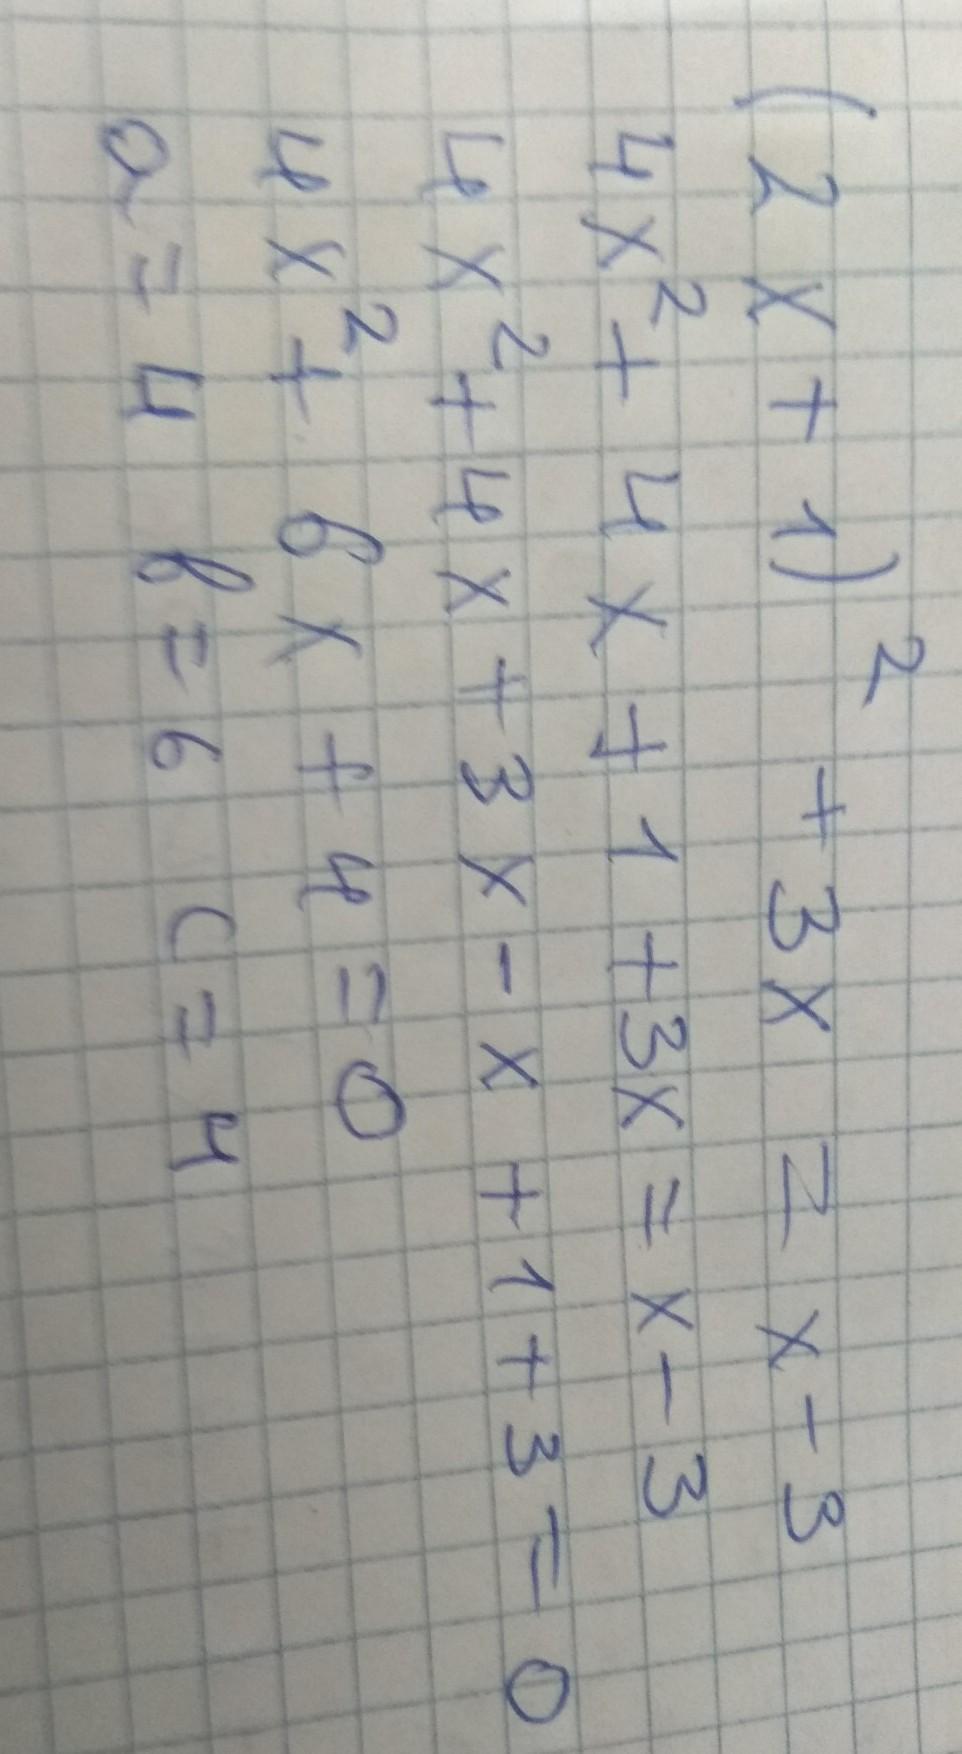 (2x+1)² +3x = x-3
4x²+4x+1+3x=x-3
4x²+4x+3x-x+1+3=0
4x²+6x+4=0
a=4 b=6 c=4